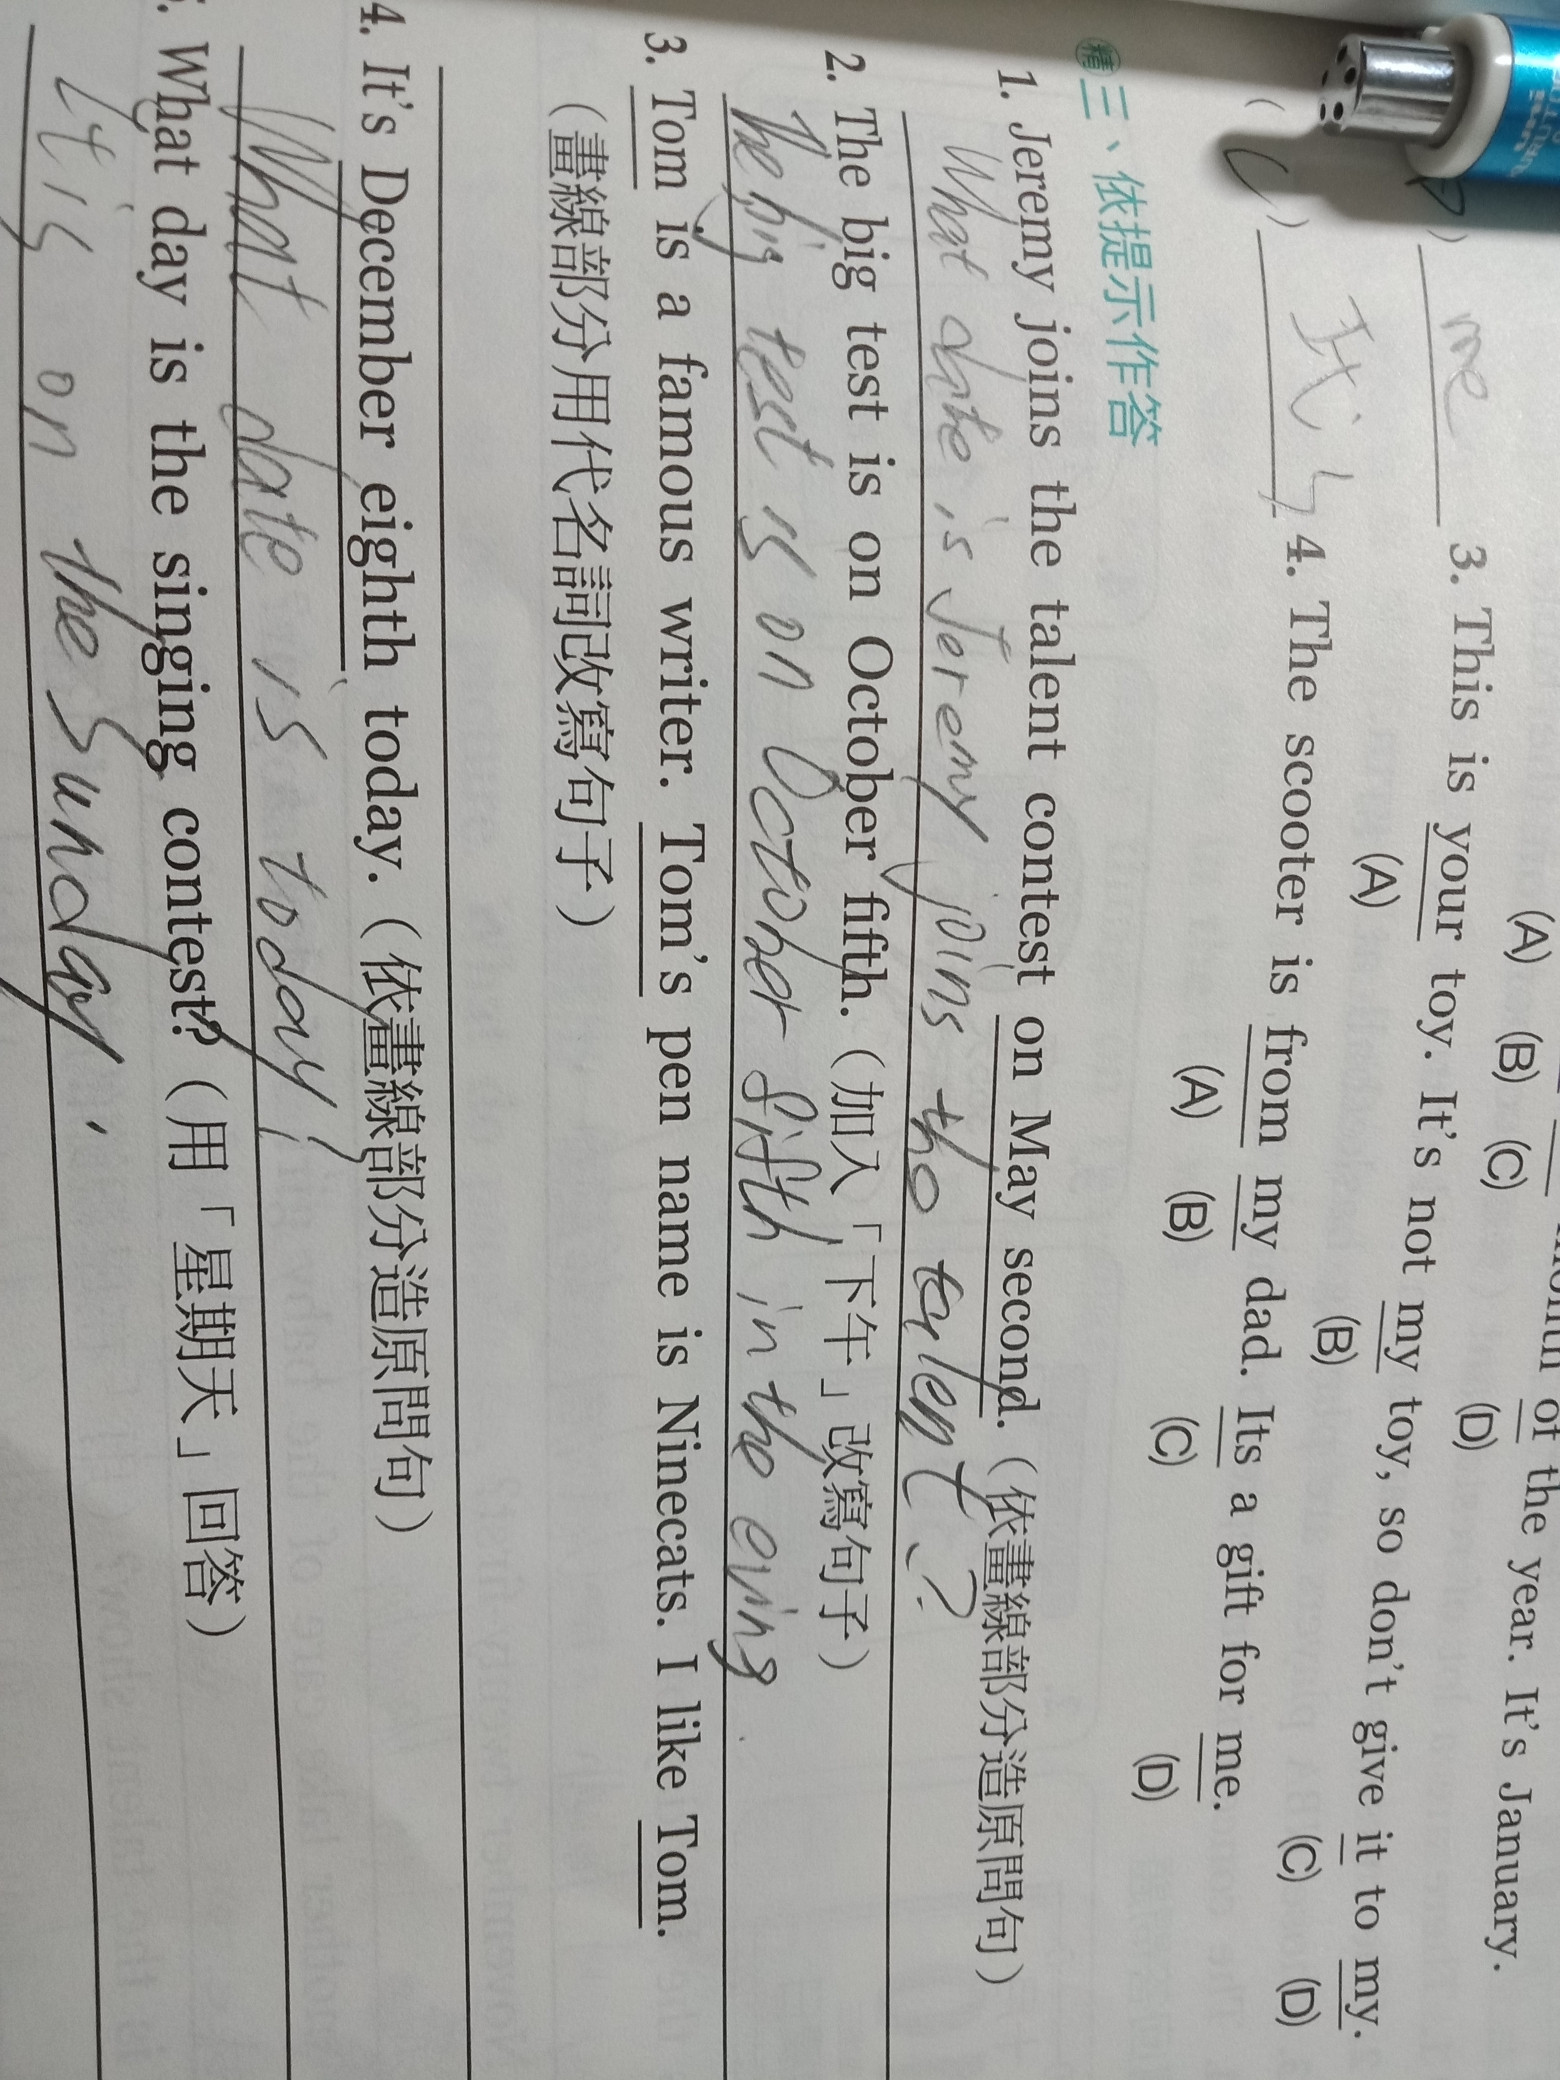 of the year. It's January.
(A) (B) (C) (D)
me 3. This is your toy. It's not my toy, so don't give it to my.
(A) (B) (C) (D)
( C ) It's 4. The scooter is from my dad. Its a gift for me.
(A) (B) (C) (D)
精 三、依提示作答
1. Jeremy joins the talent contest on May second.（依畫線部分造原問句）
What date is Jeremy joins tho talent?
2. The big test is on October fifth.（加入「下午」改寫句子）
The big test is on October fifth in the eving.
3. Tom is a famous writer. Tom's pen name is Ninecats. I like Tom.
（畫線部分用代名詞改寫句子）
4. It's December eighth today.（依畫線部分造原問句）
What date is today?
. What day is the singing contest?（用「星期天」回答）
It is on the Sunday.